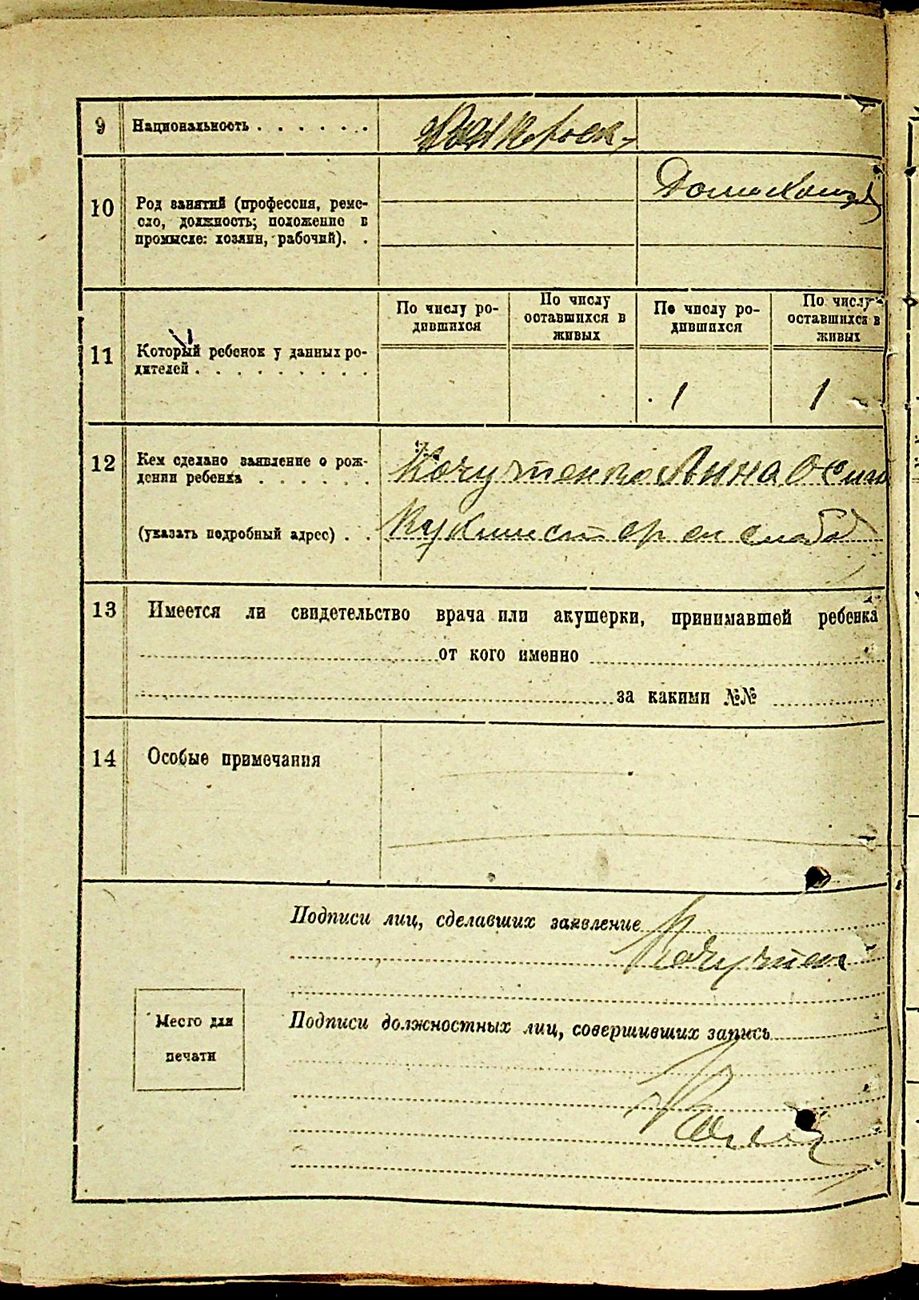 9 Национальность . . . . . .
10 Род занятий (профессия, реме-
сло, должность; положение в
промысле: хозяин, рабочий). .
Домохоз
11 Который ребенок у данных ро-
дителей . . . . . . . . .
По числу ро-
дившихся
По числу
оставшихся в
живых
По числу ро-
дившихся
По числу
оставшихся в
живых
1 1
12 Кем сделано заявление о рож-
дении ребенка . . . . . .
Анна
(указать подробный адрес) . .
13 Имеется ли свидетельство врача или акушерки, принимавшей ребенка
от кого именно
за какими №№
14 Особые примечания
Подписи лиц, сделавших заявление
Место для
печати
Подписи должностных лиц, совершивших запись